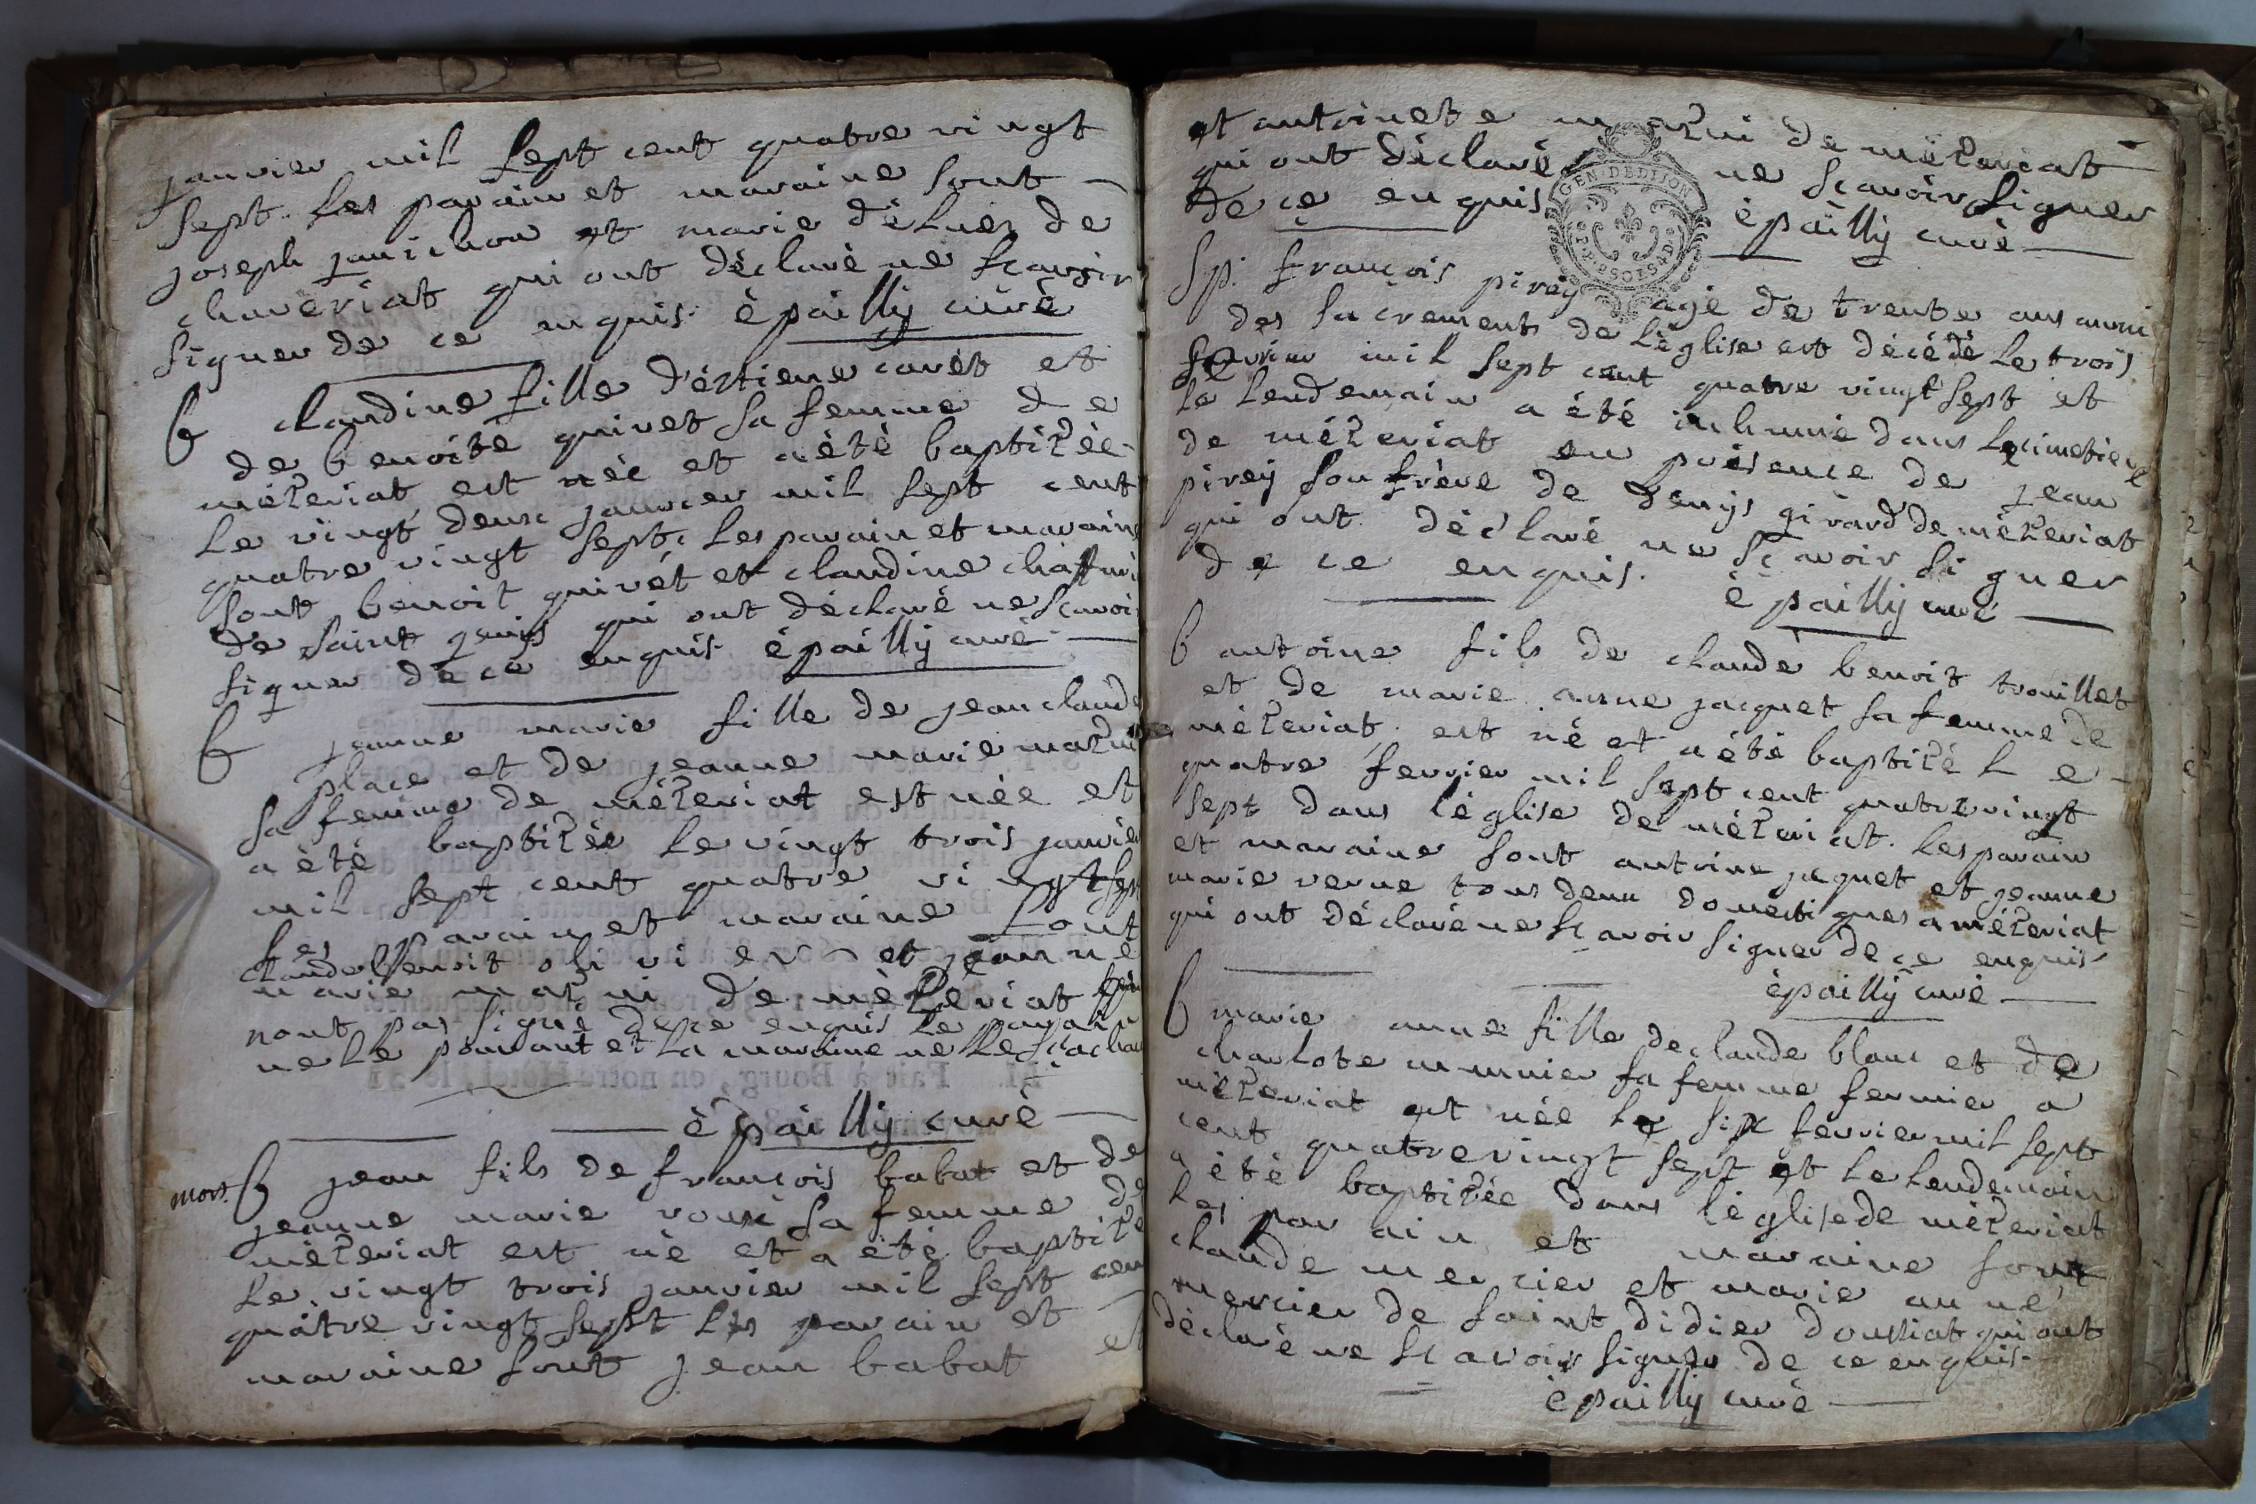 janvier mil sept cent quatre vingt
sept. Les parain et maraine sont
joseph janichon et marie déluer de
chaveriat qui ont déclaré ne sçavoir
signer de ce enquis. épailly curé
b claudine fille d'éttiene carét et
de benoité quivet sa femme de
mézeriat est née et a été baptizée
le vingt deux janvier mil sept cent
quatre vingt sept. Les parain et maraine
sont benoit quivét et claudine
de saint genis qui ont déclaré ne scavoir
signer de ce enquis. épailly curé
b jeanne marie fille de jean claude
place et de jeanne marie
sa femme de mézeriat est née et
a été baptizée le vingt trois janvier
mil sept cent quatre vingt sept
les parain et maraine sont
claude benoit olivier et jeanne
marie de mézeriat
nont pas signé de ce enquis le parain
ne le pouvant et la maraine ne le sçachant
épailly curé
mort b jean fils de françois babat et de
jeanne marie roux sa femme de
mézeriat est né et a été baptizé
le vingt trois janvier mil sept cent
quatre vingt sept les parain et
maraine sont jean babat et
et antoinete de mézeriat
qui ont déclaré ne sçavoir signer
de ce enquis épailly curé
GEN. DE DIJON
Sp. françois pirey agé de trente ans muni
des sacrements de l'église est décédé le trois
fevrier mil sept cent quatre vingt sept et
le lendemain a été inhumé dans le cimetiere
de mézeriat en présence de jean
pirey son frère de denys girard de mézeriat
qui ont déclaré ne sçavoir signer
de ce enquis. épailly curé
b antoine fils de claude benoit trouillet
et de marie anne jacquet sa femme de
mézeriat est né et a été baptizé le
quatre fevrier mil sept cent quatre vingt
sept dans l'église de mézeriat. Les parain
et maraine sont antoine jaquet et jeanne
marie verne tous deux domestiques a mézeriat
qui ont déclaré ne sçavoir signer de ce enquis
épailly curé
b marie anne fille de claude blanc et de
charlote munier sa femme fermier a
mézeriat est née le six fevrier mil sept
cent quatre vingt sept et le lendemain
a été baptizée dans l'église de mézeriat
les parain et maraine sont
claude mercier et marie anne
mercier de saint didier d'oussiat qui ont
déclaré ne sçavoir signer de ce enquis.
épailly curé